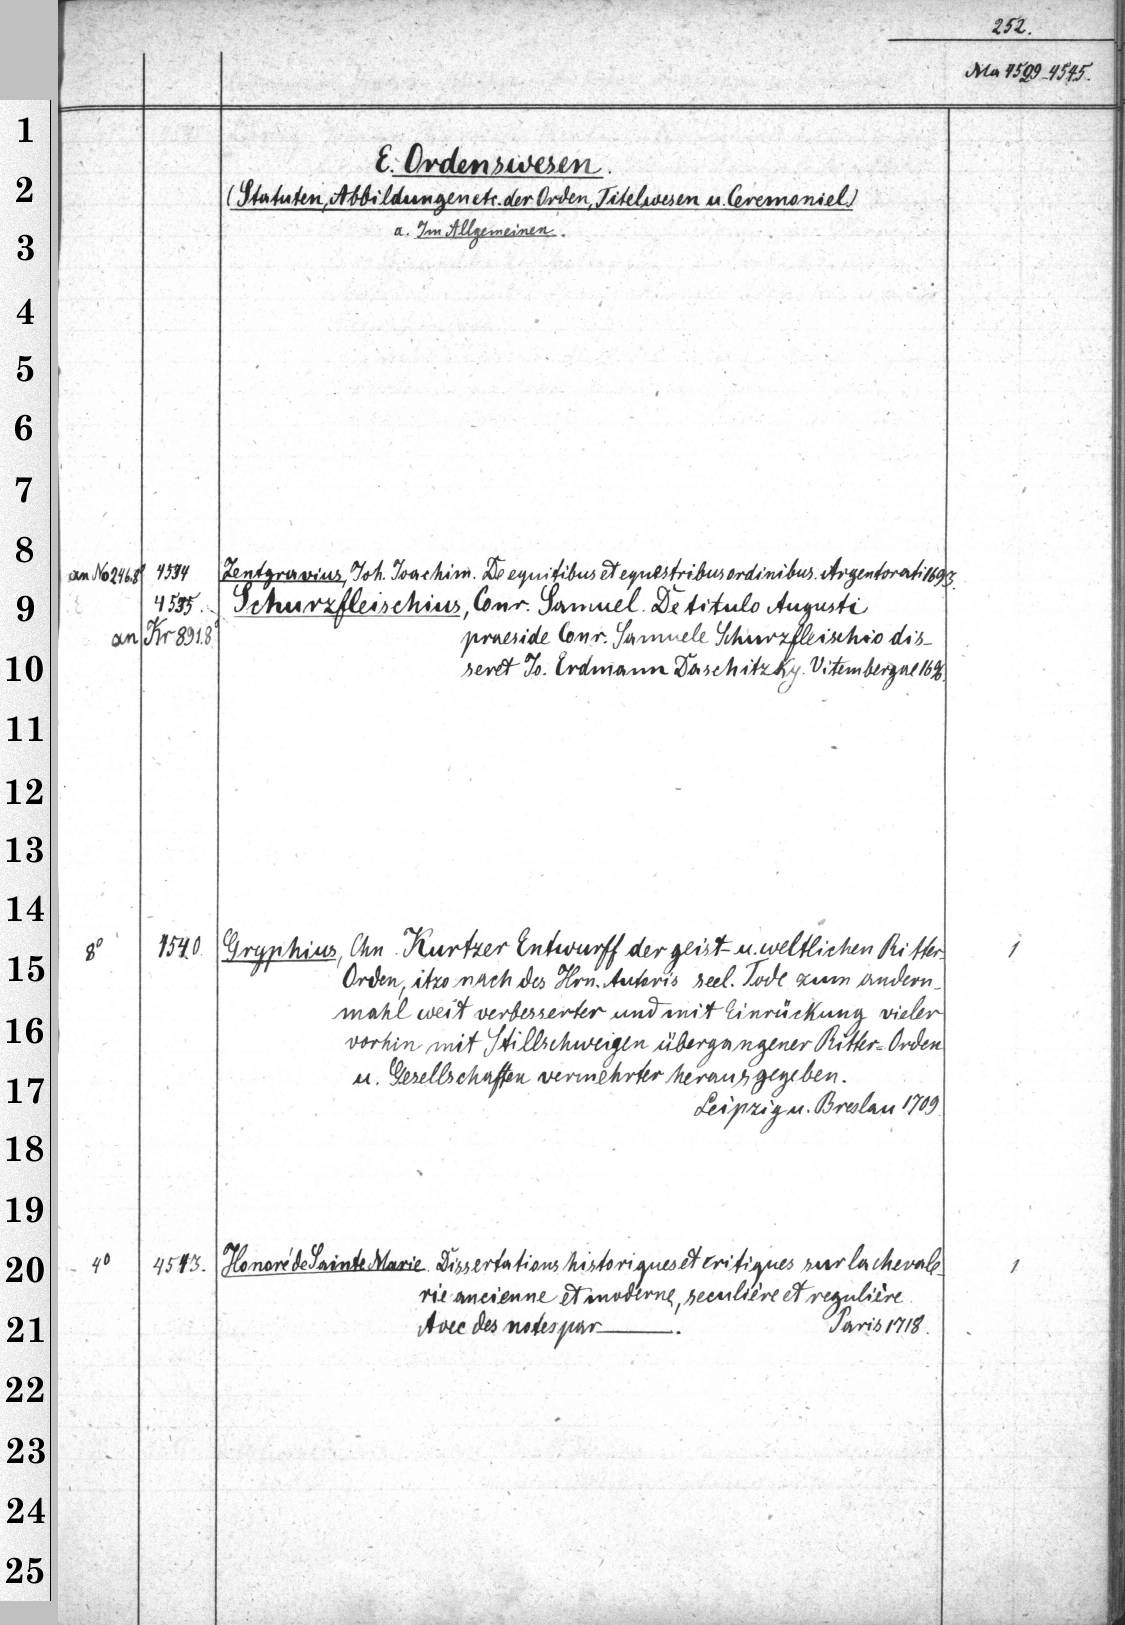 252.
Ma 4529-4545.
E. Ordenswesen.
(Statuten, Abbildungen etc. der Orden, Titelwesen u. Ceremoniel.)
a. Im Allgemeinen.
an No 246.8° 4534 Zentgravius, Joh. Joachim. De equitibus et equestribus ordinibus. Argentorati 1693.
4535. Schurzfleischius, Conr. Samuel. De titulo Augusti
an Kr 891.8° praeside Conr. Samuele Schurzfleischio dis-
seret Jo. Erdmann Daschitzky. Vitembergae
8° 4540 Gryphius, Chn. Kurtzer Entwurff der geist- u. weltlichen Ritter- 1
Orden, itzo nach des Hrn. Autoris seel. Tode zum andern-
mahl weit verbesserter und mit Einrückung vieler
vorhin mit Stillschweigen übergangener Ritter-Orden
u. Gesellschafften vermehrter herausgegeben.
Leipzig u. Breslau 1709
4° 4543. Honoré de Sainte Marie. Dissertations historiques et critiques sur la chevale- 1
rie ancienne et moderne, seculière et regulière.
Avec des notes par ———. Paris 1718.
1
2
3
4
5
6
7
8
9
10
11
12
13
14
15
16
17
18
19
20
21
22
23
24
25